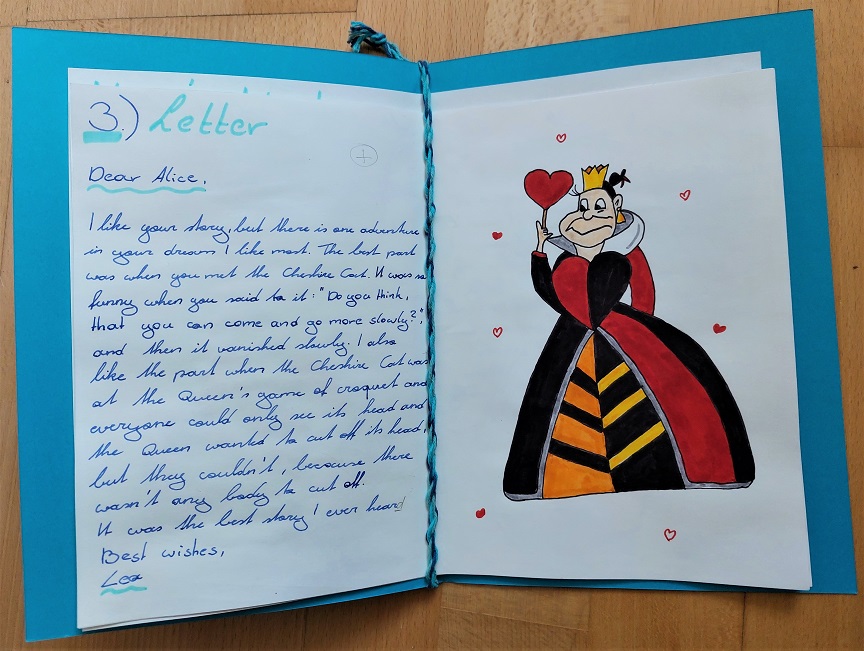 3.) Letter
Dear Alice,
I like your story, but there is one adventure
in your dream I like most. The best part
was when you met the Cheshire Cat. It was so
funny when you said to it: "Do you think,
that you can come and go more slowly?",
and then it vanished slowly. I also
like the part when the Cheshire Cat was
at the Queen's game of croquet and
everyone could only see its head and
the Queen wanted to cut off its head,
but they couldn't, because there
wasn't any body to cut off.
It was the best story I ever heard
Best wishes,
Lea